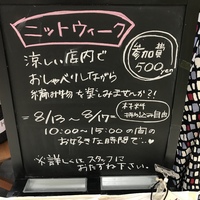 ニットウィーク
涼しい店内で
おしゃべりしながら
編み物を楽しみませんか?!
参加費
500yen
材料
持ち込み自由
8/13〜8/17
10:00〜15:00の間の
お好きな時間で
※詳しくはスタッフに
おたずね下さい。